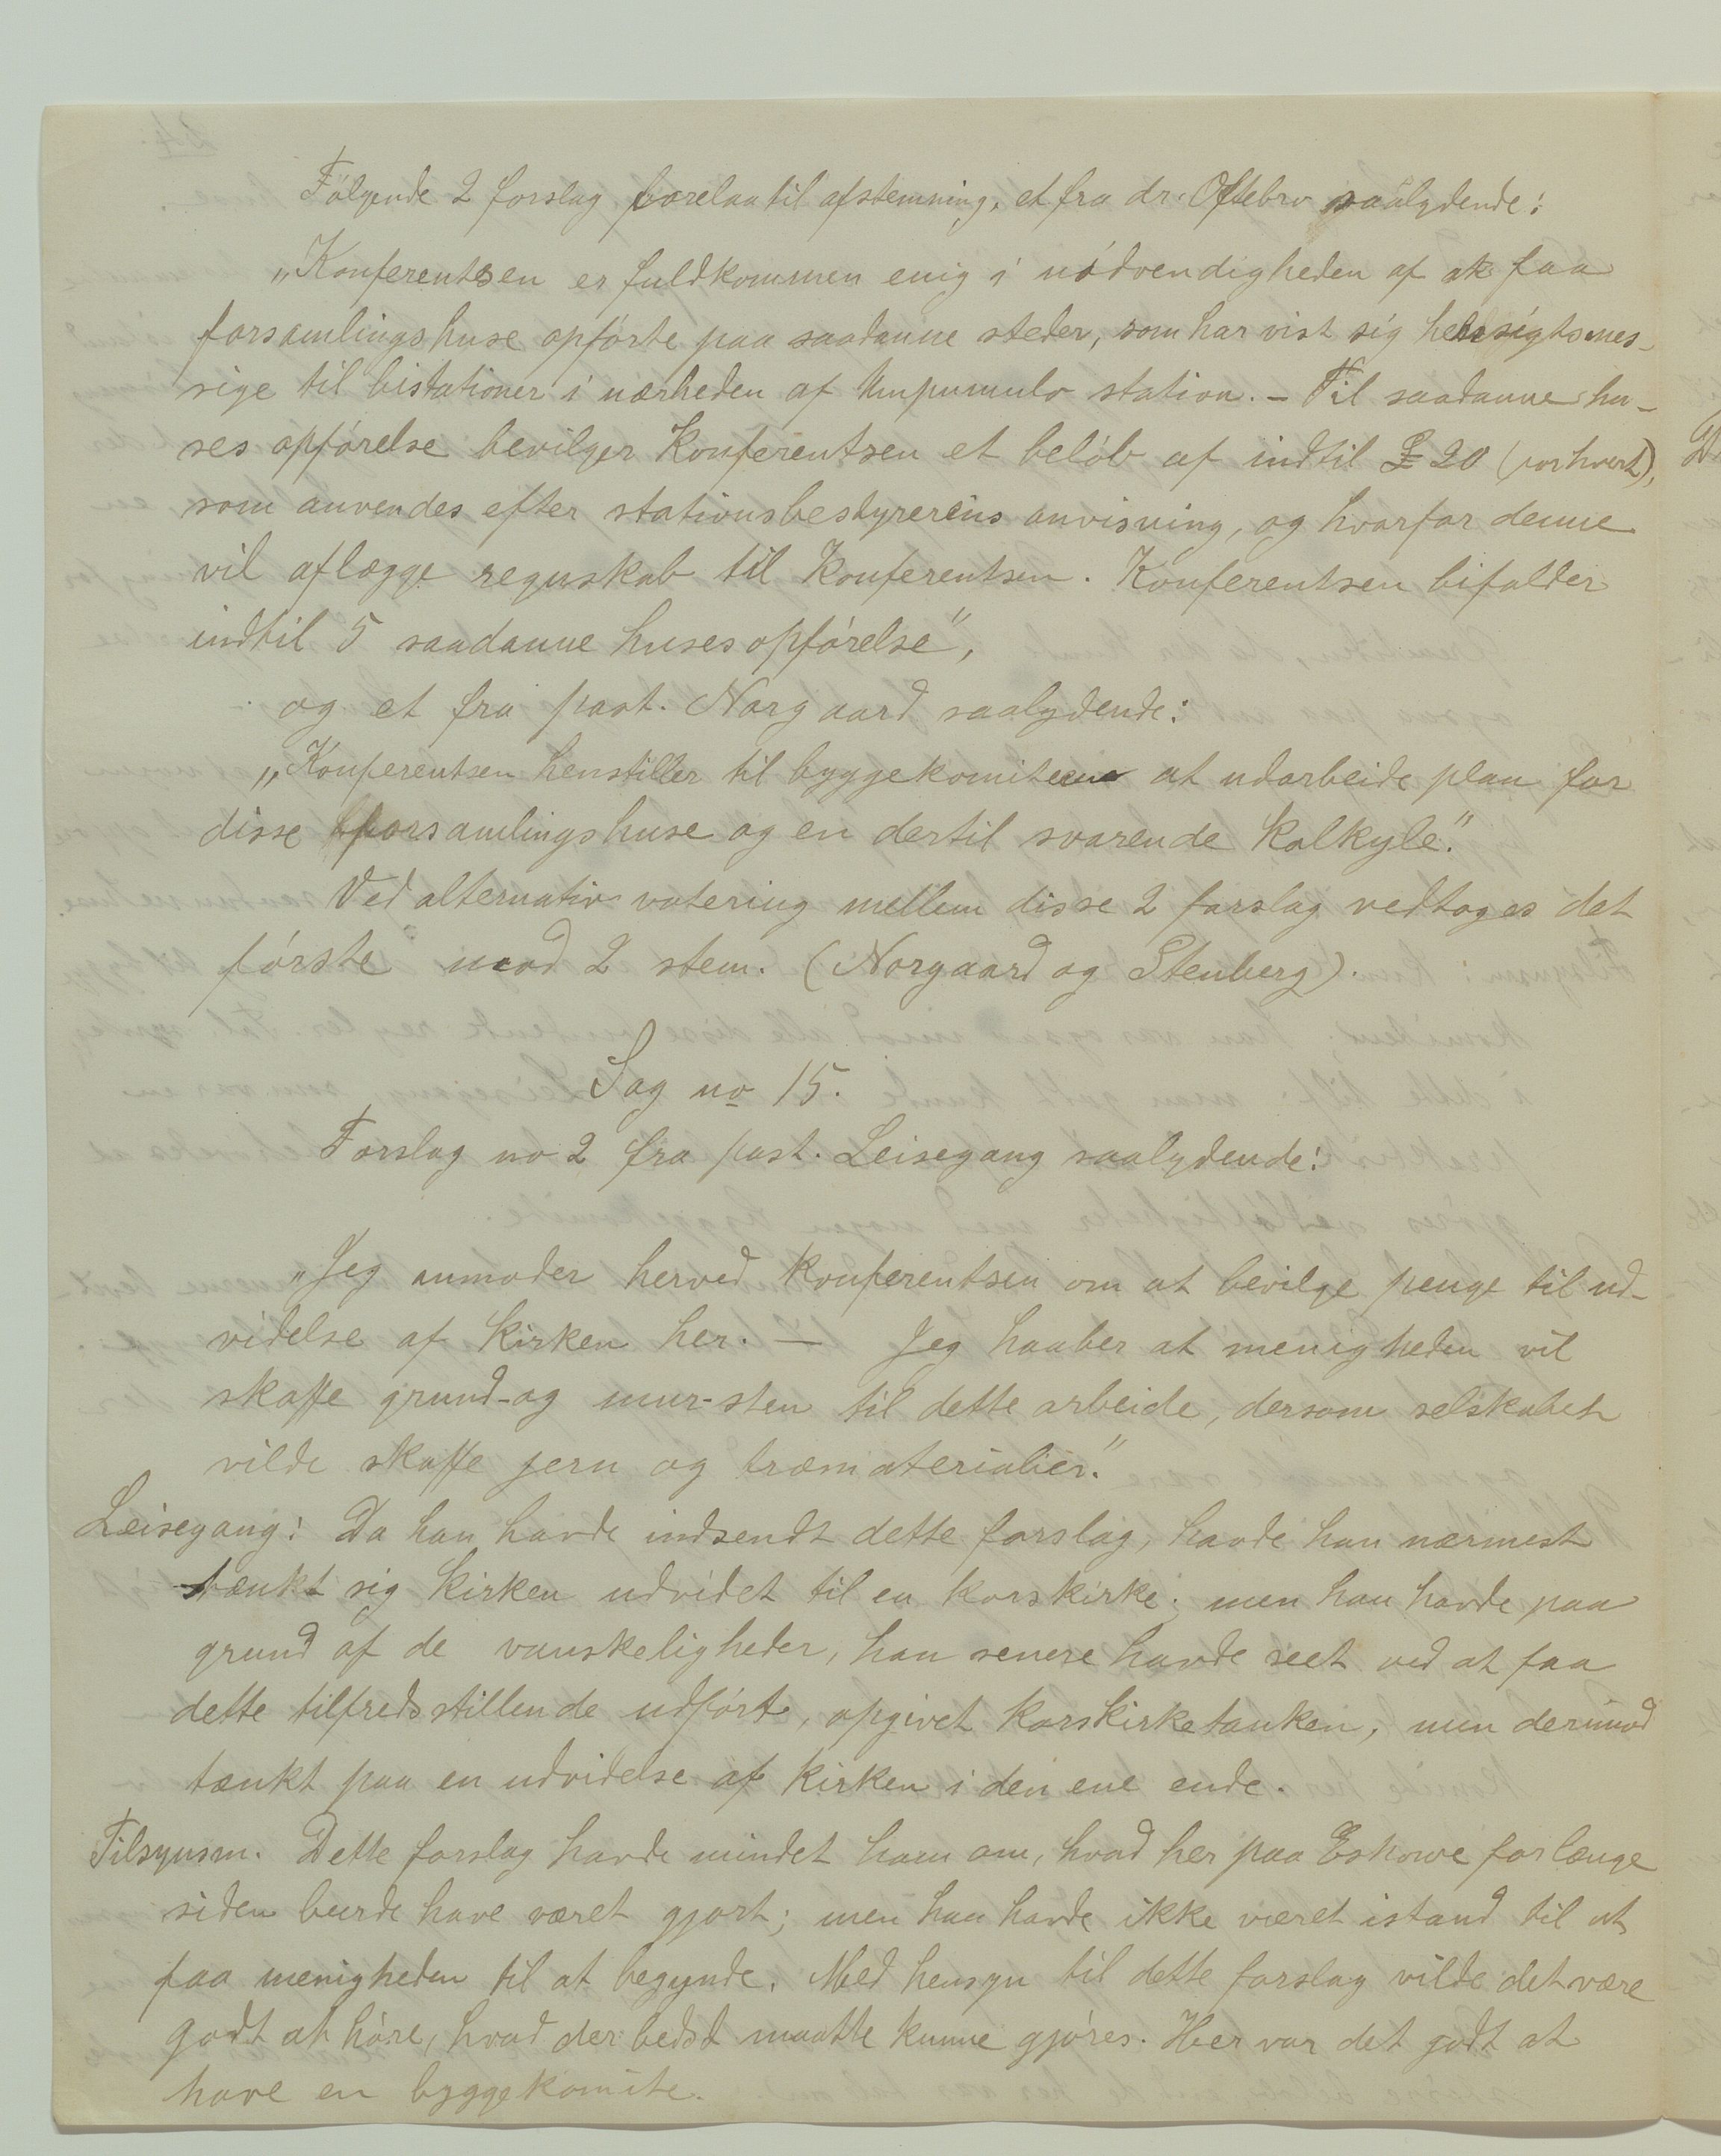 Følgende 2 forslag forelaa til afstemning, et fra dr. Oftebro saalydende:
„Konferentsen er fuldkommen enig i nødvendigheden af at faa
forsamlingshuse opførte paa saadanne steder, som har vist sig hensigtsmes-
sige til bistationer i nærheden af Umpumulo station. – Til saadanne hu-
ses opførelse bevilger Konferentsen et beløb af indtil £ 20 (for hvert),
som anvendes efter stationsbestyrerens anvisning, og hvorfor denne
vil aflægge regnskab til Konferentsen. Konferentsen bifalder
indtil 5 saadanne huses opførelse",
og et fra past. Norgaard saalydende:
„Konferentsen henstiller til byggekomiteen at udarbeide plan for
disse forsamlingshuse og en dertil svarende kalkyle."
Ved alternativ votering mellem disse 2 forslag vedtoges det
første mod 2 stem. (Norgaard og Stenberg).
Sag no 15.
Forslag no 2 fra past. Leisegang saalydende:
„Jeg anmoder herved Konferentsen om at bevilge penge til ud-
videlse af kirken her. — Jeg haaber at menigheden vil
skaffe grund- og mur-sten til dette arbeide, dersom selskabet
vilde skaffe jern og træmaterialier."
Leisegang: Da han havde indsendt dette forslag, havde han nærmest
tænkt sig kirken udvidet til en korskirke; men han havde paa
grund af de vanskeligheder, han senere havde seet ved at faa
dette tilfredsstillende udført, opgivet korskirketanken, men derimod
tænkt paa en udvidelse af kirken i den ene ende.
Tilsynsm. Dette forslag havde mindet ham om, hvad her paa Eshowe for længe
siden burde have været gjort; men han havde ikke været istand til at
faa menigheden til at begynde. Med hensyn til dette forslag vilde det være
godt at høre, hvad der bedst maatte kunne gjøres. Her var det godt at
have en byggekomite.